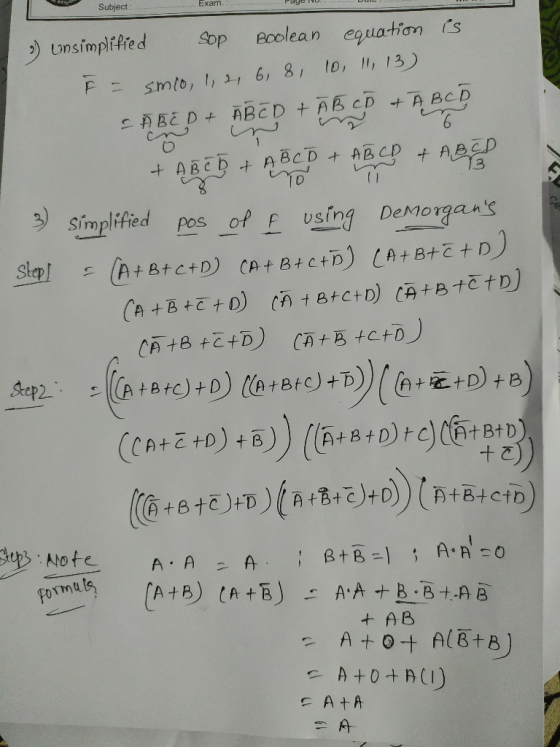 Subject : Exam. : Page No. :
2) Unsimplified SOP Boolean equation is
F̅ = sm(0, 1, 2, 6, 8, 10, 11, 13)
= A̅B̅C̅D + A̅B̅C̅D + A̅B̅CD̅ + A̅BCD̅
0 1 2 6
+ AB̅C̅D̅ + AB̅CD̅ + AB̅CD + ABC̅D
8 10 11 13
3) Simplified POS of F using DeMorgan's
Step1 = (A+B+C+D) (A+B+C+D̅) (A+B+C̅+D)
(A+B̅+C̅+D) (A̅+B+C+D) (A̅+B+C̅+D)
(A̅+B+C̅+D̅) (A̅+B̅+C+D̅)
Step2: = (((A+B+C)+D) ((A+B+C)+D̅)) ((A+C̅+D)+B)
((A+C̅+D)+B̅)) ((A̅+B+D)+C) ((A̅+B+D)
+C̅))
(((A̅+B+C̅)+D̅) (A̅+B+C̅)+D)) (A̅+B̅+C+D̅)
Step3: Note A·A = A. ; B+B̅=1 ; A·A'=0
formula (A+B) (A+B̅) = A·A + B·B̅ + AB̅
+ AB
= A+0+A(B̅+B)
= A+0+A(1)
= A+A
= A